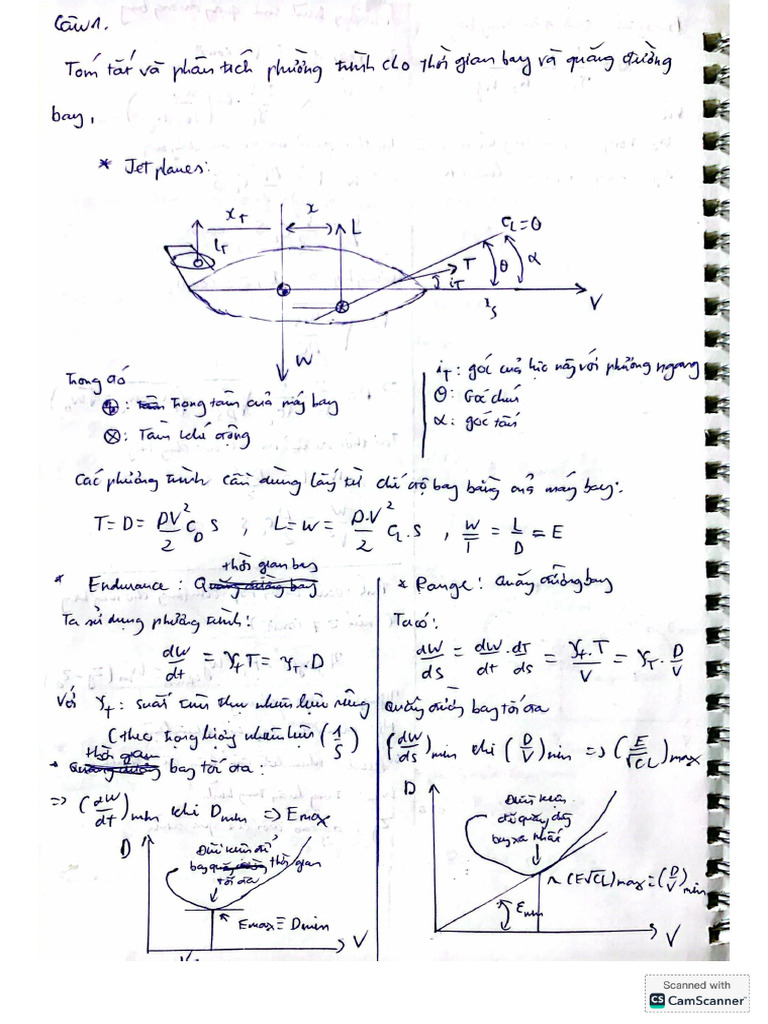 Câu 1.
Tóm tắt và phân tích phương trình cho thời gian bay và quãng đường
bay,
* Jet planes:
x_T x L C_L = 0
l_T T θ α
i_T
x_s V
W
Trong đó
⊕: Trọng tâm của máy bay
⊗: Tâm khí động
i_T: góc của lực đẩy với phương ngang
θ: Góc chúi
α: góc tấn
Các phương trình cần dùng lấy từ chế độ bay bằng của máy bay:
T = D = ρV²/2 C_D S , L = W = ρ.V²/2 C_L.S , W/T = L/D = E
* Endurance: thời gian bay
Ta sử dụng phương trình:
dW/dt = γ_T T = γ_T . D
Với γ_T: suất tiêu thụ nhiên liệu riêng
(theo trọng lượng nhiên liệu (1/s)
* thời gian bay tối đa:
=> (dW/dt)min khi Dmin => Emax
D
Điều kiện để
bay thời gian
tối đa
Emax ≡ Dmin
V
* Range: Quãng đường bay
Ta có:
dW/ds = dW/dt . dT/ds = γ_T . T/V = γ_T . D/V
Quãng đường bay tối đa
(dW/ds)min khi (D/V)min => (E/√CL)max
D
Điều kiện
để quãng đg
bay xa nhất
(E√CL)max = (D/V)min
Emin
V
Scanned with
CS CamScanner